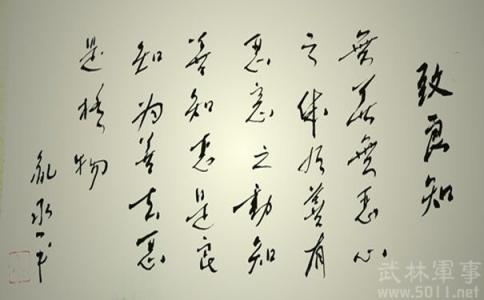 致良知
無善無惡心
之体有善有
惡意之動知
善知惡是良
知為善去惡
是格物
武林軍事
www.5011.net